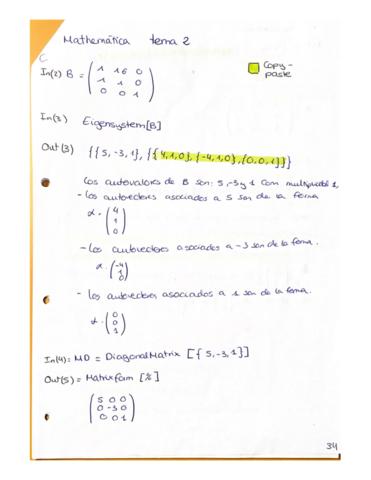 Mathemática tema 2
C
In(2) B = ( 1 16 0
1 1 0
0 0 1 )
Copy-
paste
In(3) Eigensystem[B]
Out(3) {{5, -3, 1}, {{4,1,0}, {-4,1,0}, {0,0,1}}}
Los autovalores de B son: 5, -3 y 1 com multiplicidad 1,
- Los autovectores asociados a 5 son de la forma
α · ( 4
1
0 )
- Los autovectores asociados a -3 son de la forma.
α · ( -4
1
0 )
- Los autovectores asociados a 1 son de la forma.
α · ( 0
0
1 )
In(4) = MD = DiagonalMatrix [{5, -3, 1}]
Out(5) = MatrixForm [%]
( 5 0 0
0 -3 0
0 0 1 )
34